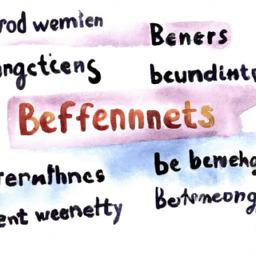 rod wemten Beners
ngctiens bcundint
Beffenmnets
rernthncs be benehg
ent weenetty Betemeong